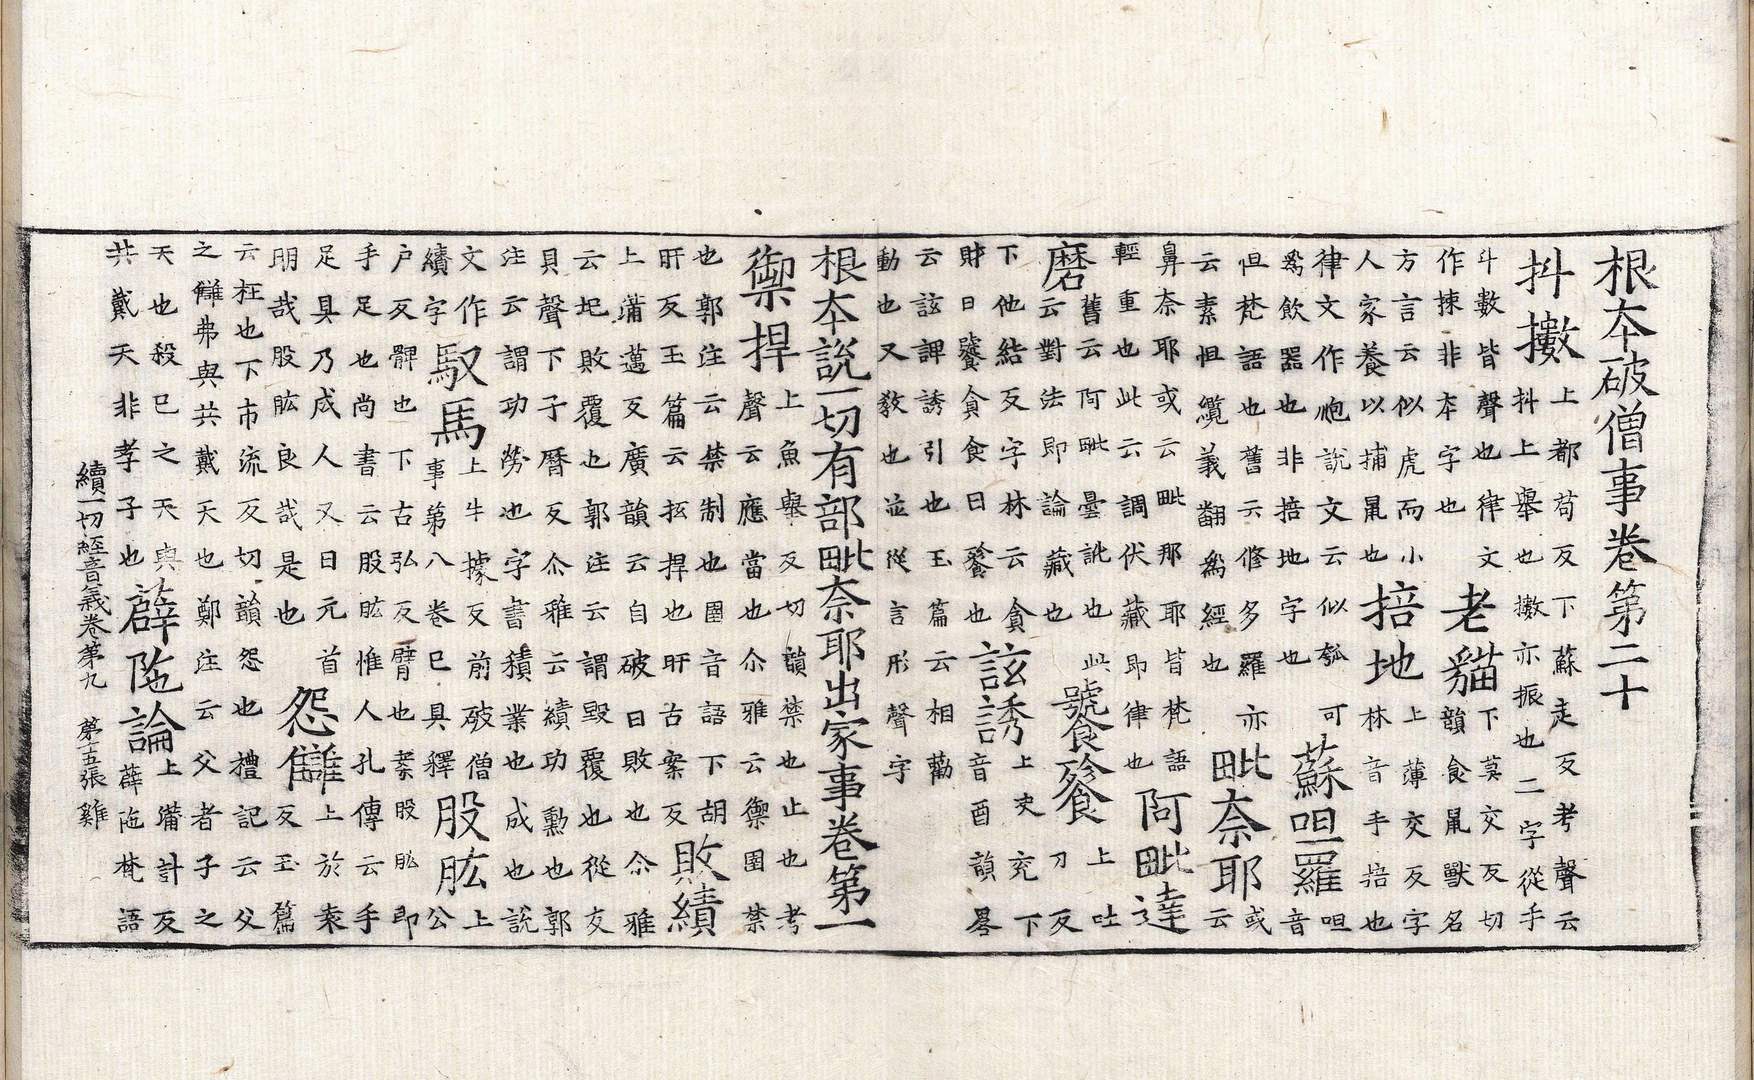 根本破僧事卷第二十
抖擻
上都苟反下蘇走反考聲云
抖上舉也擻亦振也二字從手
斗數皆聲也律文
作揀非本字也
老貓
下莫交反切
韻食鼠獸名
方言云似虎而小
人家養以捕鼠也
掊地
上薄交反字
林音手掊也
律文作炮說文云似瓠可
爲飲器也非掊地字也
蘇呾羅
呾
音
怛梵語也舊云修多羅亦
云素怛纜義翻爲經也
毗奈耶
或
云
鼻奈耶或云毗那耶皆梵語
輕重也此云調伏藏即律也
阿毗達
磨
舊云阿毗曇訛也此
云對法即論藏也
饕餮
上吐
刀反
下他結反字林云貪
財曰饕貪食曰餮也
詃誘
上夬兗下
音酉韻畧
云詃諀誘引也玉篇云相勸
動也又教也並從言形聲字
根本說一切有部毗奈耶出家事卷第一
禦捍
上魚舉反切韻禁也止也考
聲云應當也尒雅云禦圉禁
也郭注云禁制也圉音語下胡
旰反玉篇云扞捍也旰古案反
敗績
上蒲邁反廣韻云自破曰敗也尒雅
云圮敗覆也郭注云謂毀覆也從攵
貝聲下子曆反尒雅云績功勳也郭
注云謂功勞也字書積業也成也說
文作
績字
馭馬
上牛據反前破僧
事第八卷已具釋
股肱
上
公
戶反髀也下古弘反臂也案股肱即
手足也尚書云股肱惟人孔傳云手
足具乃成人又曰元首
明哉股肱良哉是也
怨讎
上於袁
反玉篇
云枉也下市流反切韻怨也禮記云父
之讎弗與共戴天也鄭注云父者子之
天也殺己之天與
共戴天非孝子也
薜陁論
上蒲計反
薜陁梵語
續一切經音義卷第九 第十五張 雞